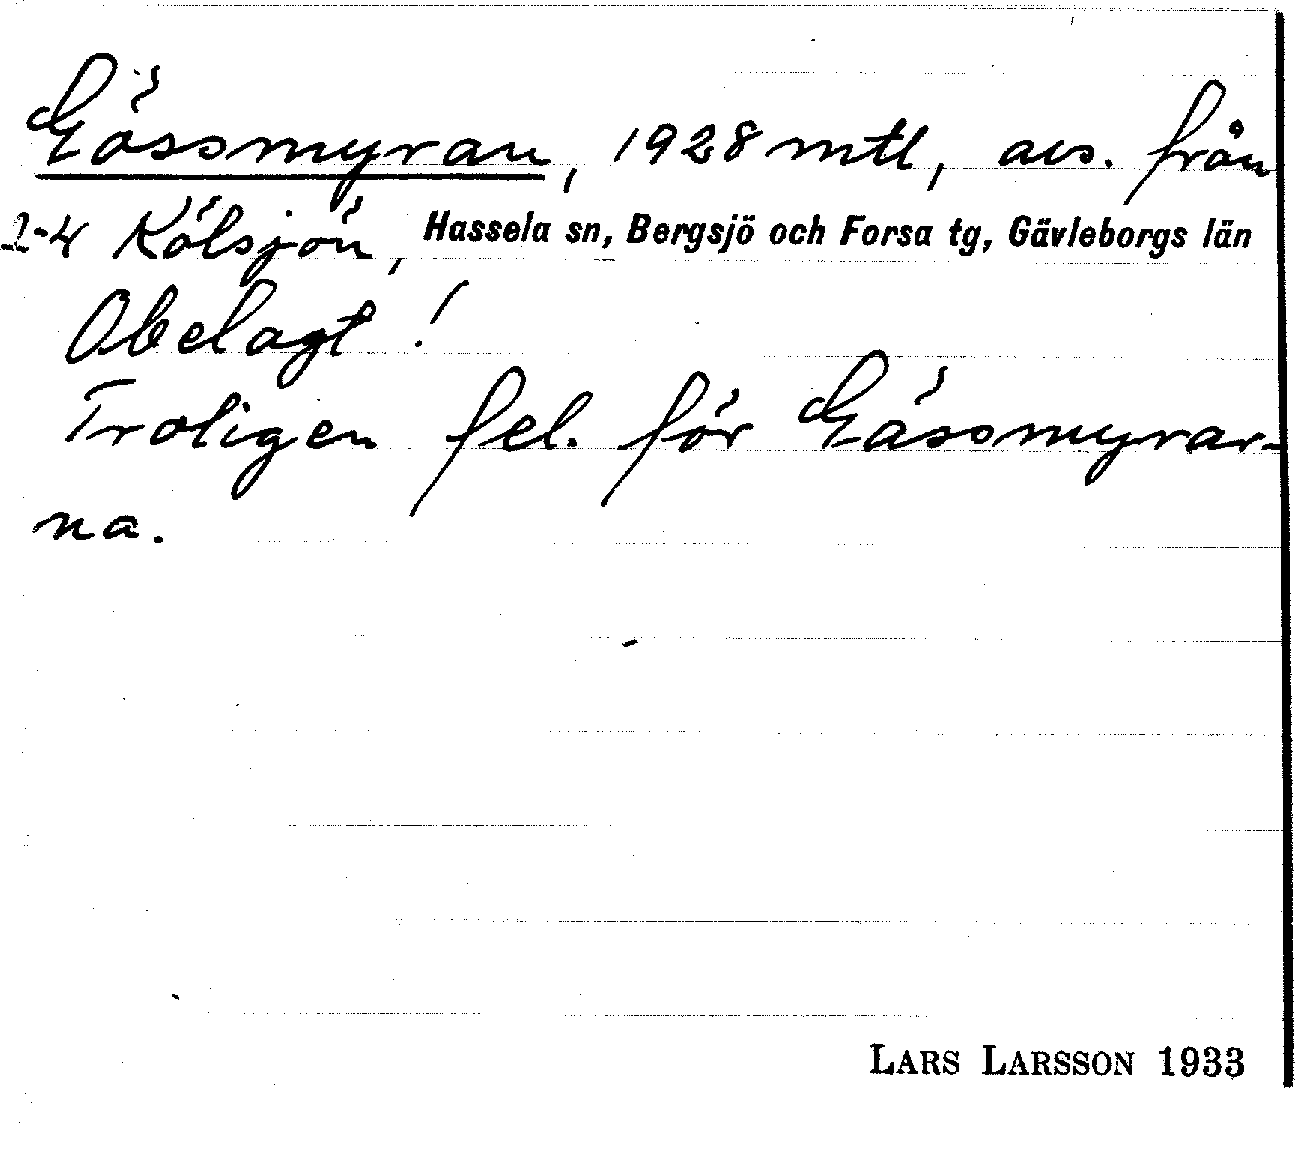 Gössmyran, 1928 mtl, avs. från
2-4 Kölsjön, Hassela sn, Bergsjö och Forsa tg, Gävleborgs län
Obelagt!
Troligen fel. för Gässmyrar-
na.
LARS LARSSON 1933